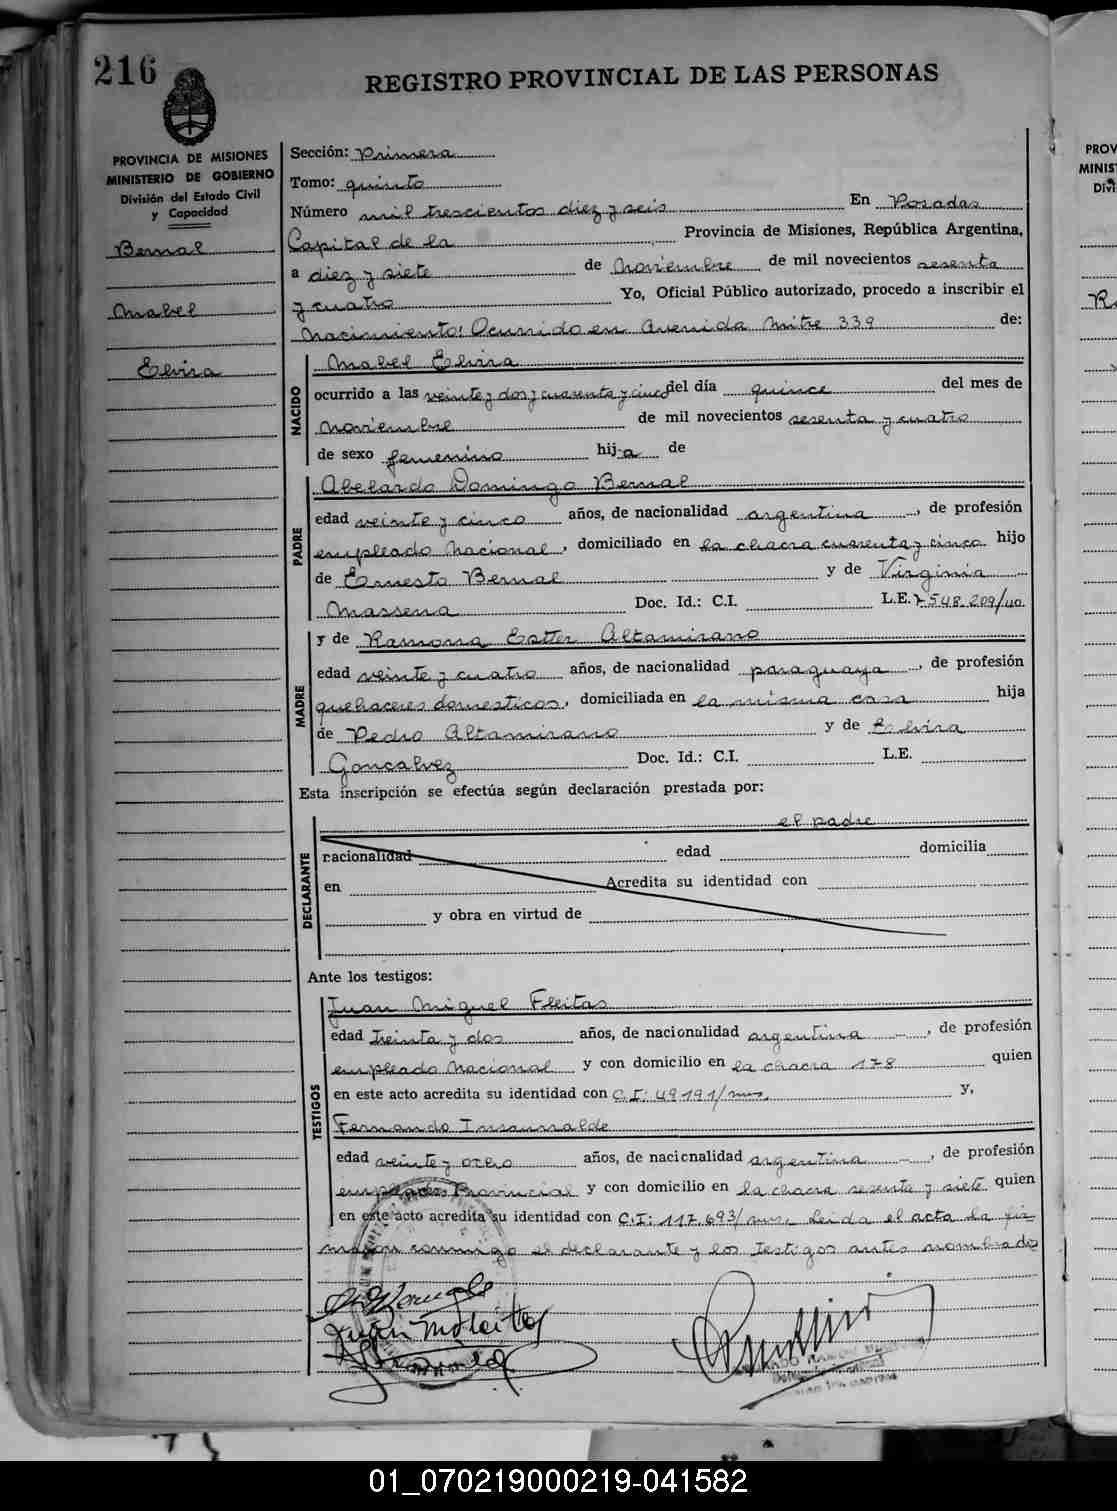 216
REGISTRO PROVINCIAL DE LAS PERSONAS
PROVINCIA DE MISIONES
MINISTERIO DE GOBIERNO
División del Estado Civil
y Capacidad
Bernal
Mabel
Elvira
Sección: Primera
Tomo: quinto
Número mil trescientos diez y seis En Posadas
Capital de la Provincia de Misiones, República Argentina,
a diez y siete de Noviembre de mil novecientos sesenta
y cuatro Yo, Oficial Público autorizado, procedo a inscribir el
Nacimiento: Ocurrido en Avenida Mitre 339 de:
NACIDO
Mabel Elvira
ocurrido a las veinte y dos y cuarenta y cinco del día quince del mes de
Noviembre de mil novecientos sesenta y cuatro
de sexo femenino hij a de
PADRE
Abelardo Domingo Bernal
edad veinte y cinco años, de nacionalidad argentina, de profesión
empleado Nacional, domiciliado en la chacra cuarenta y cinco hijo
de Ernesto Bernal y de Virginia
Massena Doc. Id.: C.I. L.E. 7.548.209/uo
MADRE
y de Ramona Ester Altamirano
edad veinte y cuatro años, de nacionalidad paraguaya, de profesión
quehaceres domesticos, domiciliada en la misma casa hija
de Pedro Altamirano y de Elvira
Goncalvez Doc. Id.: C.I. L.E.
Esta inscripción se efectúa según declaración prestada por:
DECLARANTE
el padre
nacionalidad edad domicilia
en Acredita su identidad con
y obra en virtud de
Ante los testigos:
TESTIGOS
Juan Miguel Fleitas
edad treinta y dos años, de nacionalidad argentina, de profesión
empleado Nacional y con domicilio en la chacra 178 quien
en este acto acredita su identidad con C.I: 49191/mns, y,
Fernando Insaurralde
edad veinte y ocho años, de nacionalidad argentina, de profesión
empleado Provincial y con domicilio en la chacra sesenta y siete quien
en este acto acredita su identidad con C.I: 117.693/mns. Leida el acta la fir
maron conmigo el declarante y los testigos antes nombrado
PROV
MINIS
Divi
01_070219000219-041582